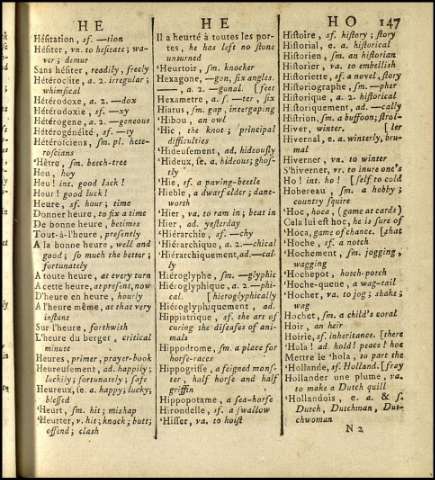 H E
Hésitation, sf. —tion
Hésiter, vn. to hesitate; wa-
ver; demur
Sans hésiter, readily, freely
Hétéroclite, a. 2. irregular;
whimsical
Hétérodoxe, a. 2. —dox
Hétérodoxie, sf. —xy
Hétérogene, a. 2. —geneous
Hétérogénéité, sf. —ty
Hétérosciens, sm. pl. hete-
roscians
'Hêtre, sm. beech-tree
Heu, hoy
Heu! int. good luck!
Heur! good luck!
Heure, sf. hour; time
Donner heure, to fix a time
De bonne heure, betimes
Tout-à l'heure, presently
A la bonne heure, well and
good; so much the better;
fortunately
A toute heure, at every turn
A cette heure, at present, now
D'heure en heure, hourly
A l'heure même, at that very
instant
Sur l'heure, forthwith
L'heure du berger, critical
minute
Heures, primer, prayer-book
Heureusement, ad. happily;
luckily; fortunately; safe
Heureux, se. a. happy; lucky;
blessed
'Heurt, sm. hit; mishap
'Heurter, v. hit; knock; butt;
offend; clash
H E
Il a heurté à toutes les por-
tes, he has left no stone
unturned
'Heurtoir, sm. knocker
Hexagone, —gon, six angles.
——, a. 2. —gonal. [feet
Hexametre, a. f. —ter, six
Hiatus, sm. gap, intergaping
'Hibou, an owl
'Hic, the knot; principal
difficulties
'Hideusement, ad. hideously
'Hideux, se. a. hideous; ghost-
ly
'Hie, sf. a paving-beetle
Hieble, a dwarf elder; dane-
worth
'Hier, va. to ram in; beat in
Hier, ad. yesterday
'Hiérarchie, sf. —chy
'Hiérarchique, a. 2. —chical
'Hiérarchiquement, ad. —cal-
ly
Hiéroglyphe, sm. —glyphic
Hiéroglyphique, a. 2. —phi-
cal. [hieroglyphically
Hiéroglyphiquement, ad.
Hippiatrique, sf. the art of
curing the diseases of ani-
mals
Hippodrome, sm. a place for
horse-races
Hippogriffe, a feigned mons-
ter, half horse and half
griffin
Hippopotame, a sea-horse
Hirondelle, sf. a swallow
'Hisser, va. to hoist
H O 147
Histoire, sf. history; story
Historial, e. a. historical
Historien, sm. an historian
Historier, va. to embellish
Historiette, sf. a novel, story
Historiographe, sm. —pher
Historique, a. 2. historical
Historiquement, ad. —cally
Histrion, sm. a buffoon; strol-
Hiver, winter. [ler
Hivernal, e. a. winterly, bru-
mal
Hiverner, vn. to winter
S'hiverner, vr. to inure one's
Ho! int. ho! [self to cold
Hobereau, sm. a hobby;
country squire
'Hoc, hoca, (game at cards)
Cela lui est hoc, he is sure of
'Hoca, game of chance. [that
'Hoche, sf. a notch
'Hochement, sm. jogging,
wagging
'Hochepot, hotch-potch
'Hoche-queue, a wag-tail
'Hocher, va. to jog; shake;
wag
Hochet, sm. a child's coral
Hoir, an heir
Hoirie, sf. inheritance. [there
'Hola! ad. hold! peace! hoe
Mettre le 'hola, to part the
'Hollande, sf. Holland. [fray
Hollander une plume, va.
to make a Dutch quill
'Hollandois, e. a. & s.
Dutch, Dutchman, Dut-
chwoman
N 2